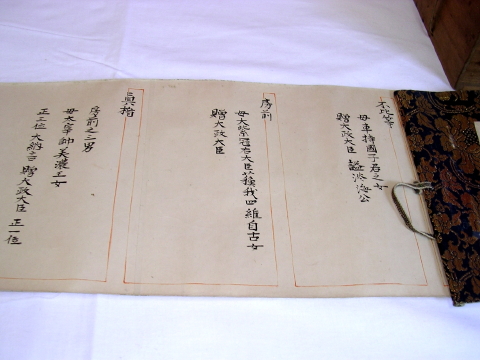 不比等
母車持國子君之女
贈大政大臣 謚淡海公
房前
母大紫冠右大臣蘓我四維自古女
贈大政大臣
真楯
房前之三男
母大宰帥美濃王女
正二位 大納言 贈大政大臣 正一位